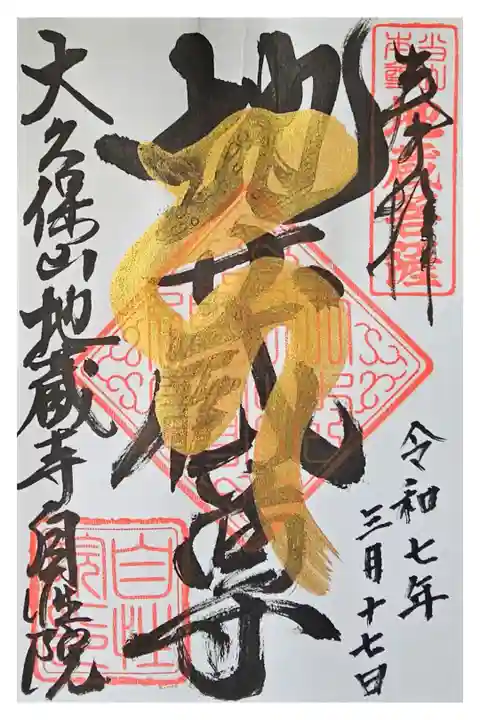 奉拝
当山本尊
地蔵菩薩
令和七年
三月十七日
地蔵尊
大久保山地蔵寺自性院
自性院